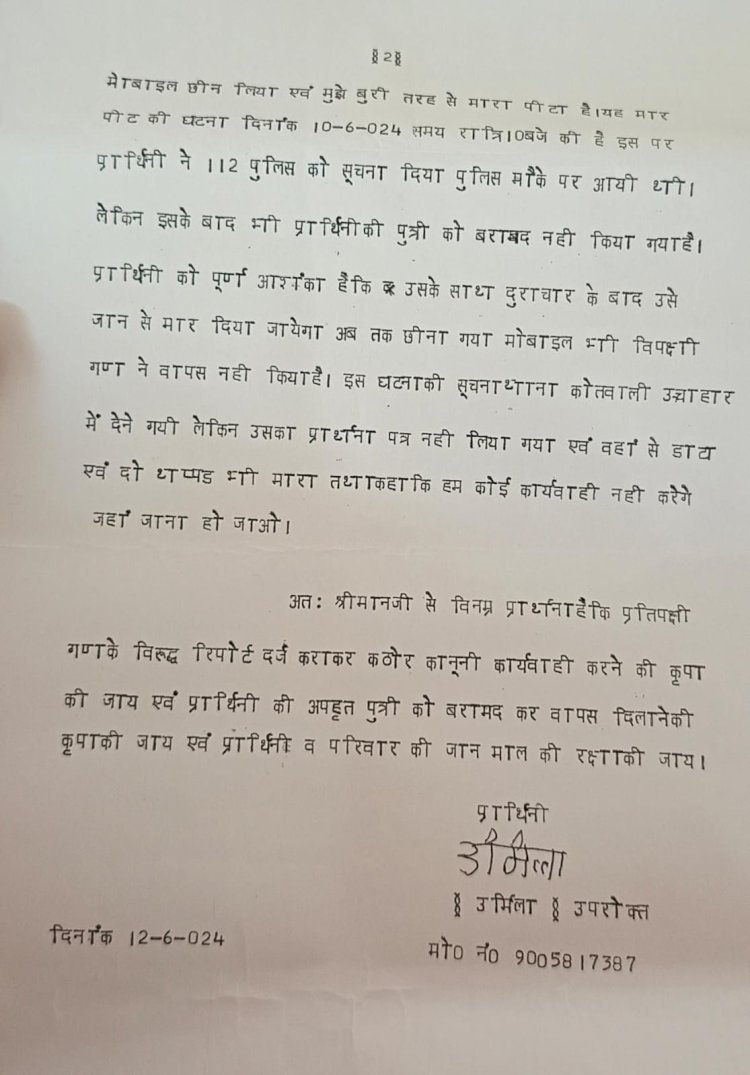 ॥2॥
मोबाइल छीन लिया एवं मुझे बुरी तरह से मारा पीटा है।यह मार
पीट की घटना दिनांक 10-6-024 समय रात्रि10बजे की है इस पर
प्रार्थिनी ने 112 पुलिस को सूचना दिया पुलिस मौके पर आयी थी।
लेकिन इसके बाद भी प्रार्थिनीकी पुत्री को बरामद नही किया गयाहै।
प्रार्थिनी को पूर्ण आशंका हैकि उसके साथ दुराचार के बाद उसे
जान से मार दिया जायेगा अब तक छीना गया मोबाइल भी विपक्षी
गण ने वापस नही कियाहै। इस घटनाकी सूचनाथाना कोतवाली उच्चाहार
में देने गयी लेकिन उसका प्रार्थना पत्र नही लिया गया एवं वहां से डाटा
एवं दो थप्पड भी मारा तथाकहाकि हम कोई कार्यवाही नही करेगे
जहां जाना हो जाओ।
अत: श्रीमानजी से विनम्र प्रार्थनाहैकि प्रतिपक्षी
गणके विरूद्ध रिपोर्ट दर्ज कराकर कठोर कानूनी कार्यवाही करने की कृपा
की जाय एवं प्रार्थिनी की अपहृत पुत्री को बरामद कर वापस दिलानेकी
कृपाकी जाय एवं प्रार्थिनी व परिवार की जान माल की रक्षाकी जाय।
प्रार्थिनी
उर्मिला
॥ उर्मिला ॥ उपरोक्त
दिनांक 12-6-024
मो0 नं0 9005817387